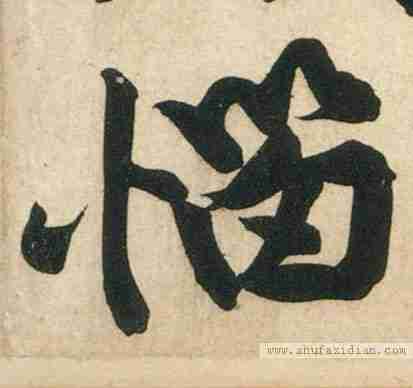 惱
www.shufazidian.com